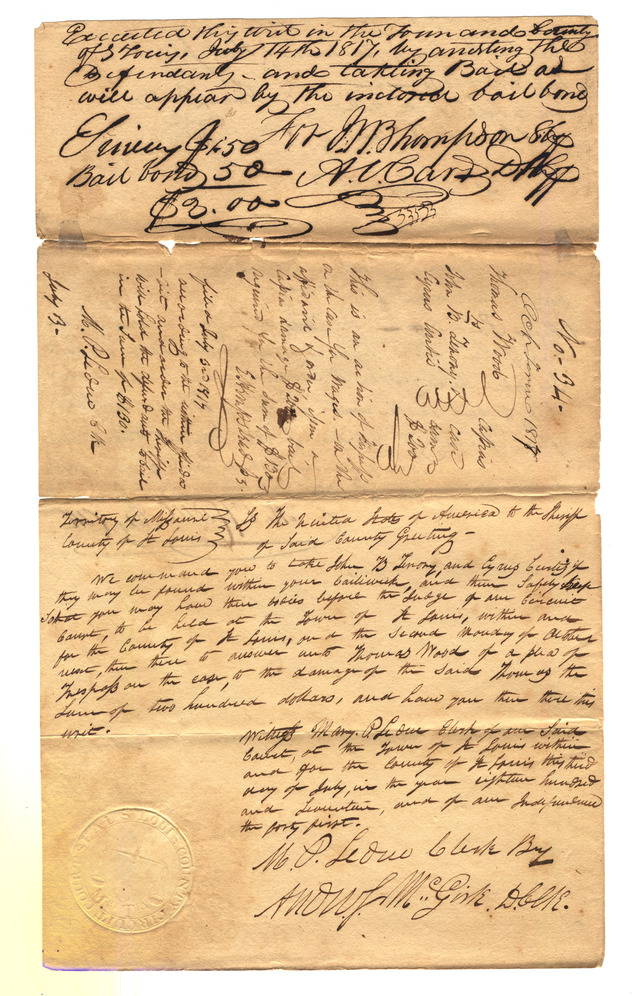 Executed this writ in the Town and County
of St Louis, July 14th 1817, by arresting the
Defendants - and taking Bail as
will appear by the inclosed bail bond
For
Bail bond 50
$2.00
No. 34.
Octr Term 1817
Thomas Wood
vs
John B
Cyrus Curtis
Capias
case
$200
This is an action of trespass
on the case
affidavit of
bail
required in the sum of $130
filed July 3rd 1817
according to the within
and the Sheriff
will hold the defendants to bail
in the Sum of $130.
M. P. Leduc Clk
July 3.
Territory of Missouri
County of St Louis
The United States of America to the Sheriff
of Said County Greeting -
We command you to take John B and Cyrus Curtis if
they may be found within your bailiwick, and them Safely keep
So that you may have their bodies before the Judge of our Circuit
Court, to be held at the Town of St Louis, within and
for the County of St Louis, on the Second Monday of October
next, then there to answer unto Thomas Wood of a plea of
Trespass on the case, to the damage of the Said Thomas the
Sum of two hundred dollars, and have you then there this
writ.
Witness Mary P Leduc Clerk of our Said
Court, at the Town of St Louis within
and for the County of St Louis this third
day of July, in the year eighteen hundred
and Seventeen, and of our Independence
the forty first.
M. P. Leduc Clerk By
Andw. S McGirk. D. Clk.